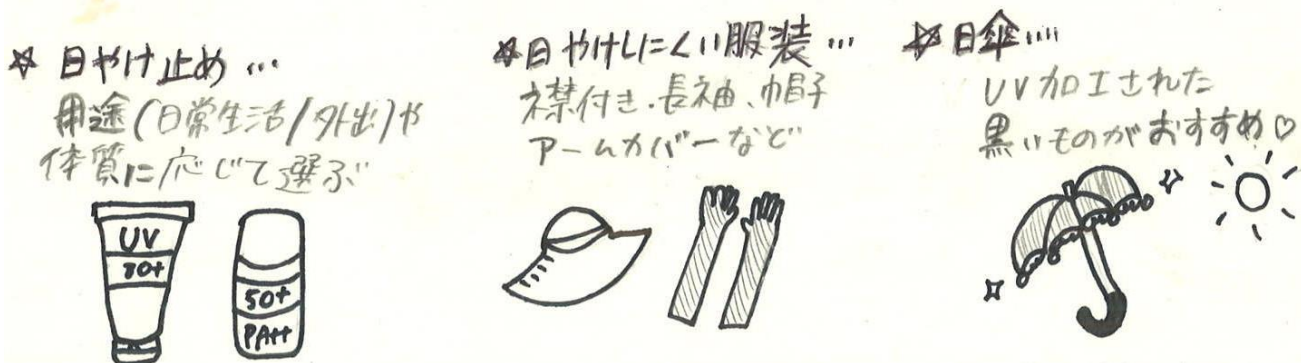 ☆ 日やけ止め…
用途(日常生活/外出)や
体質に応じて選ぶ
UV
30+
50+
PA++
☆日やけしにくい服装…
襟付き、長袖、帽子
アームカバーなど
☆日傘…
UV加工された
黒いものがおすすめ♡